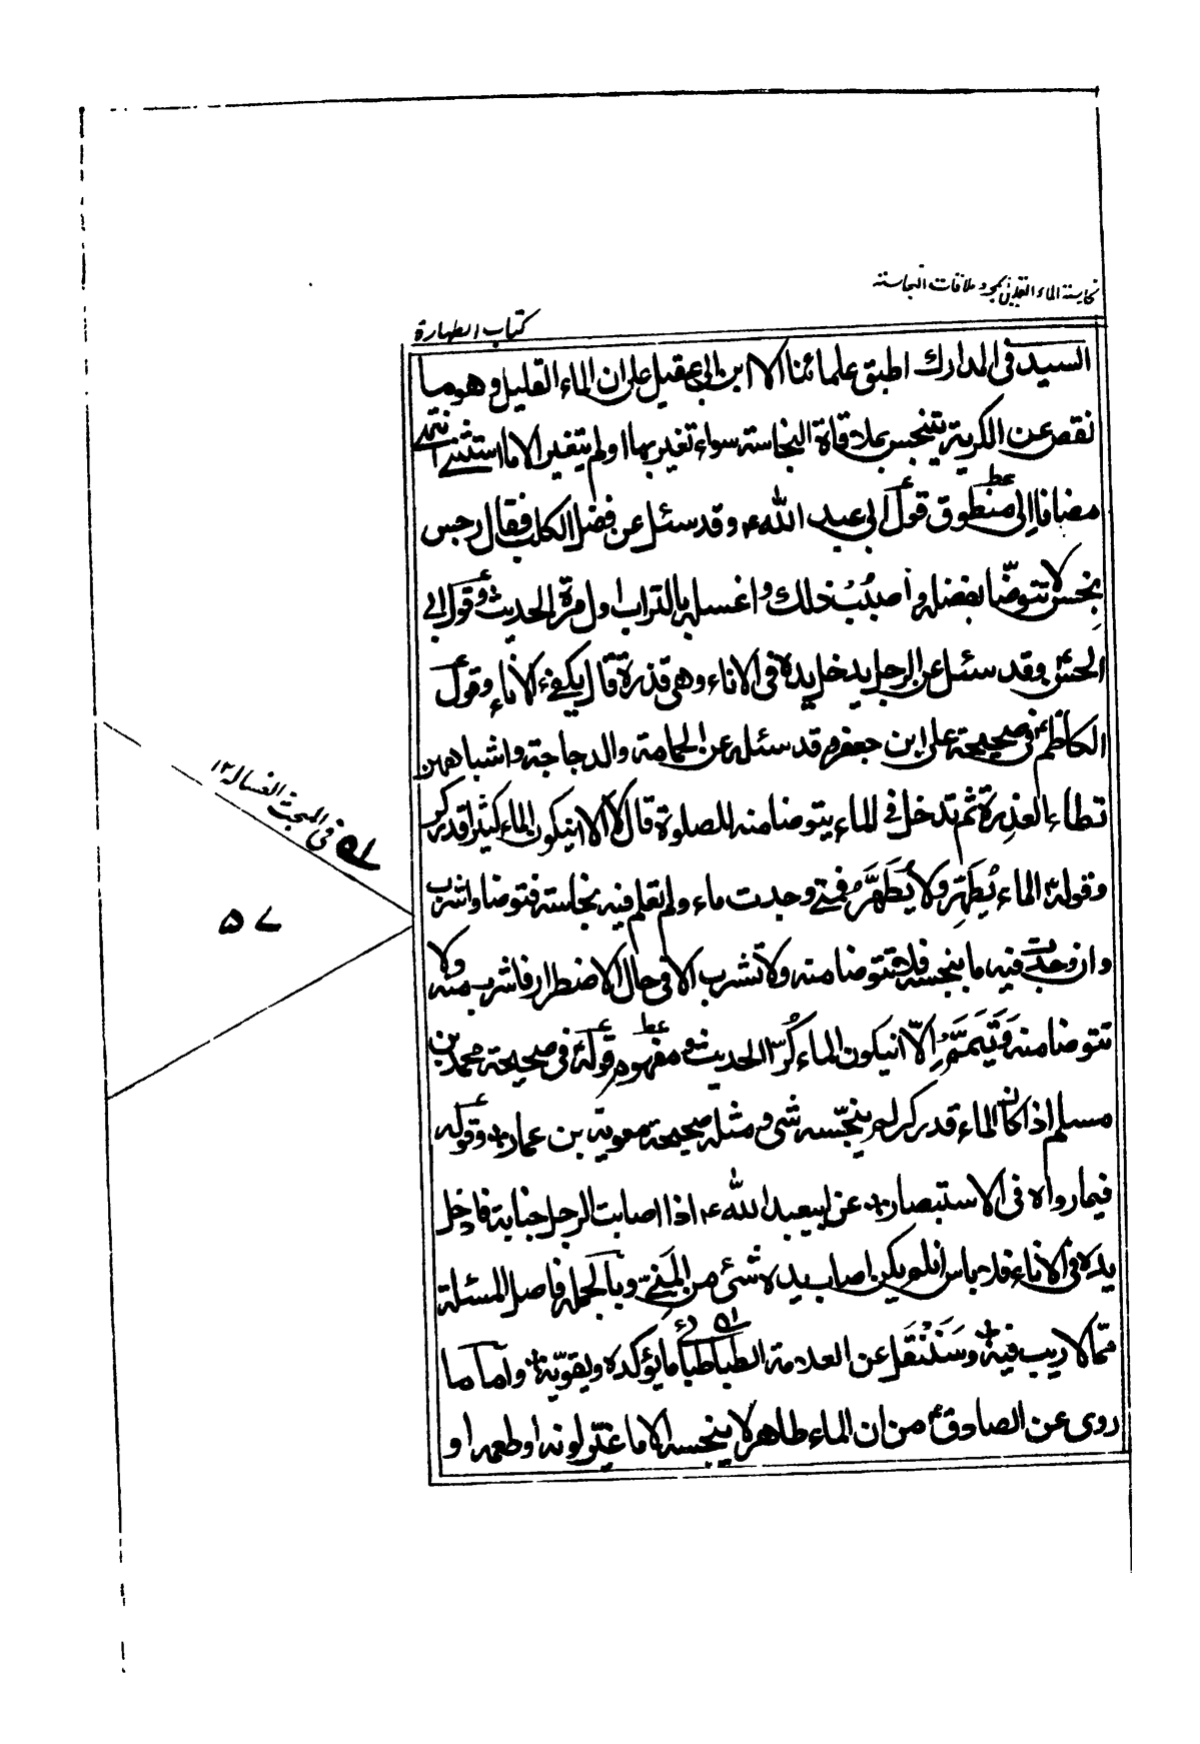 نجاسة الماء القليل بمجرد ملاقات النجاسة
كتاب الطهارة
السيد فى المدارك اطبق علمائنا الا ابن ابى عقيل على ان الماء القليل وهو ما
نقص عن الكرية يتنجس بملاقاة النجاسة سواء تغير بها او لم يتغير الا ما استثنى انتهى
مضافا الى منطوق قول ابى عبد اللهء وقد سئل عن فضل الكلب فقال رجس
نجس لا تتوضّا بفضله و اصبُبْ ذلك و اغسله بالتراب اول مرة الحديث وقول ابى
الحسنء وقد سئل عن الرجل يدخل يده فى الاناء وهى قذرة قال يكفىء الاناء وقول
الكاظمء فى صحيحة على ابن جعفر وقد سئله عن الحمامة والدجاجة واشباههن
تطاء العذِرة ثم تدخل فى الماء يتوضا منه للصلوة قال لا الا ان يكون الماء كثيرا قدر كر
وقولهء الماء يُطَهِّر ولا يُطَهَّر فمتى وجدت ماء ولم تعلم فيه نجاسة فتوضا واشرب
وان وجدت فيه ما ينجسه فلا تتوضا منه ولا تشرب الا فى حال الاضطرار فاشرب منه ولا
تتوضا منه وَتَيَمَّمْ اِلاّ ان يكون الماء كُرّا الحديث و مفهوم قولهء فى صحيحة محمد بن
مسلم اذا كان الماء قدر كر لم ينجّسه شى و مثله صحيحة معوية بن عمار وقوله
فيما رواه فى الاستبصار عن ابيعبد اللهء اذا اصابت الرجل جنابة فادخل
يده فى الاناء فلا باس ان لم يكن اصاب يده شئ من المَنِىّ وبالجملة فاصل المسئلة
ممّا لا ريب فيه وسَنَنْقل عن العلامة الطباطبائى ما يؤكده ويقوّيه واما ما
روى عن الصادقء من ان الماء طاهر لا ينجسه الا ما غيّر لونه او طعمه او
فى المبحث الغسالة ١٢
٥٧